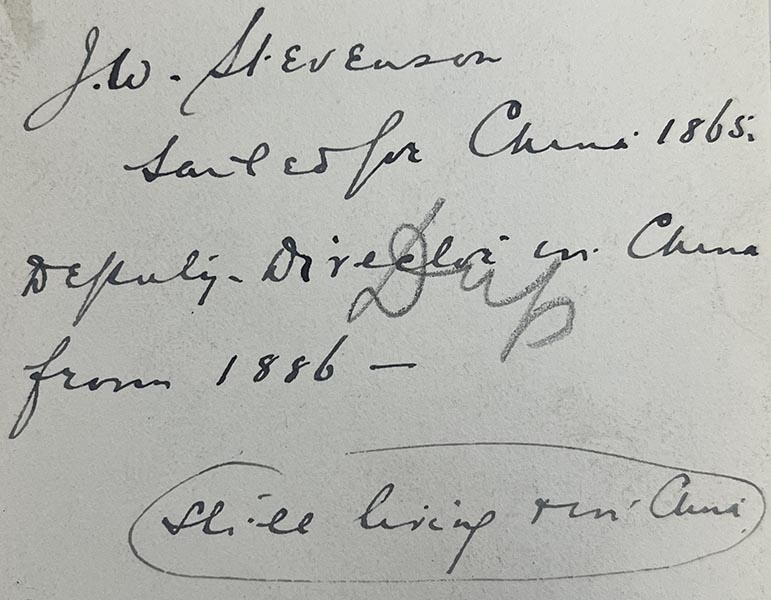 J.W. Stevenson
Sailed for China 1865.
Deputy-Director in China
Dup
from 1886 —
Still living + in China